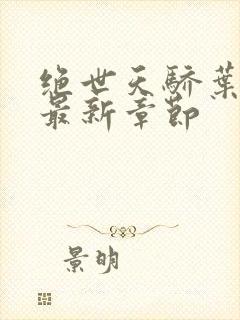 绝世天骄葉
最新章節
景明